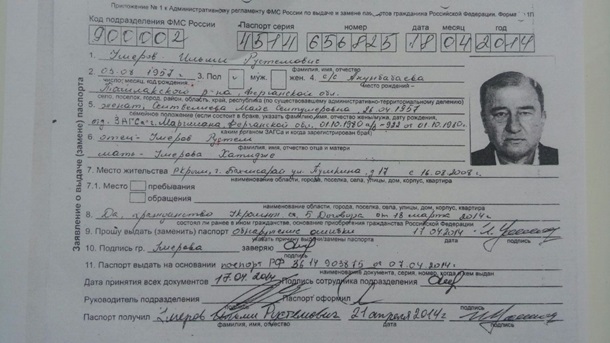 Приложение № 1 к Административному регламенту по выдаче и замене паспортов гражданина Российской Федерации. Форма 1П
Код подразделения ФМС России Паспорт серия номер дата месяц год
900002 4514 656825 18 04 2014
Заявление о выдаче (замене) паспорта
1. Умеров Ильми Рустемович
фамилия, имя, отчество
2. 03.08 1957 3. Пол v муж. жен. 4. с/с
число, месяц, год рождения Место рождения –
р-на, Ферганской обл.
село, поселок, город, район, область, край, республика (по существовавшему административно-территориальному делению)
5. женат,
семейное положение (если состоит в браке, указать фамилию, имя, отчество жены/мужа, дату, месяц,
ЗАГС г. Маргилана Ферганской обл. 01.10.1980 а/з-922 от 01.10.1980
каким органом ЗАГСа и когда зарегистрирован брак)
6. отец - Умеров Рустем
фамилия, имя, отчество отца и матери
мать - Умерова
7. Место жительства РКрым, г. Бахчисарай ул. д 17 с
наименование области, города, поселка, села, улицы, дом, корпус, квартира
7.1. Место пребывания
обращения
наименование области, города, поселка, села, улицы, дом, корпус, квартира
8. Да, гражданство Украины ст. 5 Договора от 18 марта 2014г
состоял ли ранее в ином гражданстве, основание приобретения гражданства Российской Федерации
9. Прошу выдать (заменить) паспорт обнаружение ошибки 17.04 2014г
указать причину выдачи/замены паспорта подпись
10. Подпись гр. Умерова заверяю
подпись
11. Паспорт выдать на основании паспорт РФ от 07.04.2014г.
наименование документа, серия, номер, когда и кем выдан
Дата принятия всех документов 17.04.2014 Подпись сотрудника подразделения
подпись
Руководитель подразделения Паспорт оформил
подпись подпись
Паспорт получил Умеров Ильми Рустемович 21 апреля 2014г
фамилия, имя, отчество дата подпись